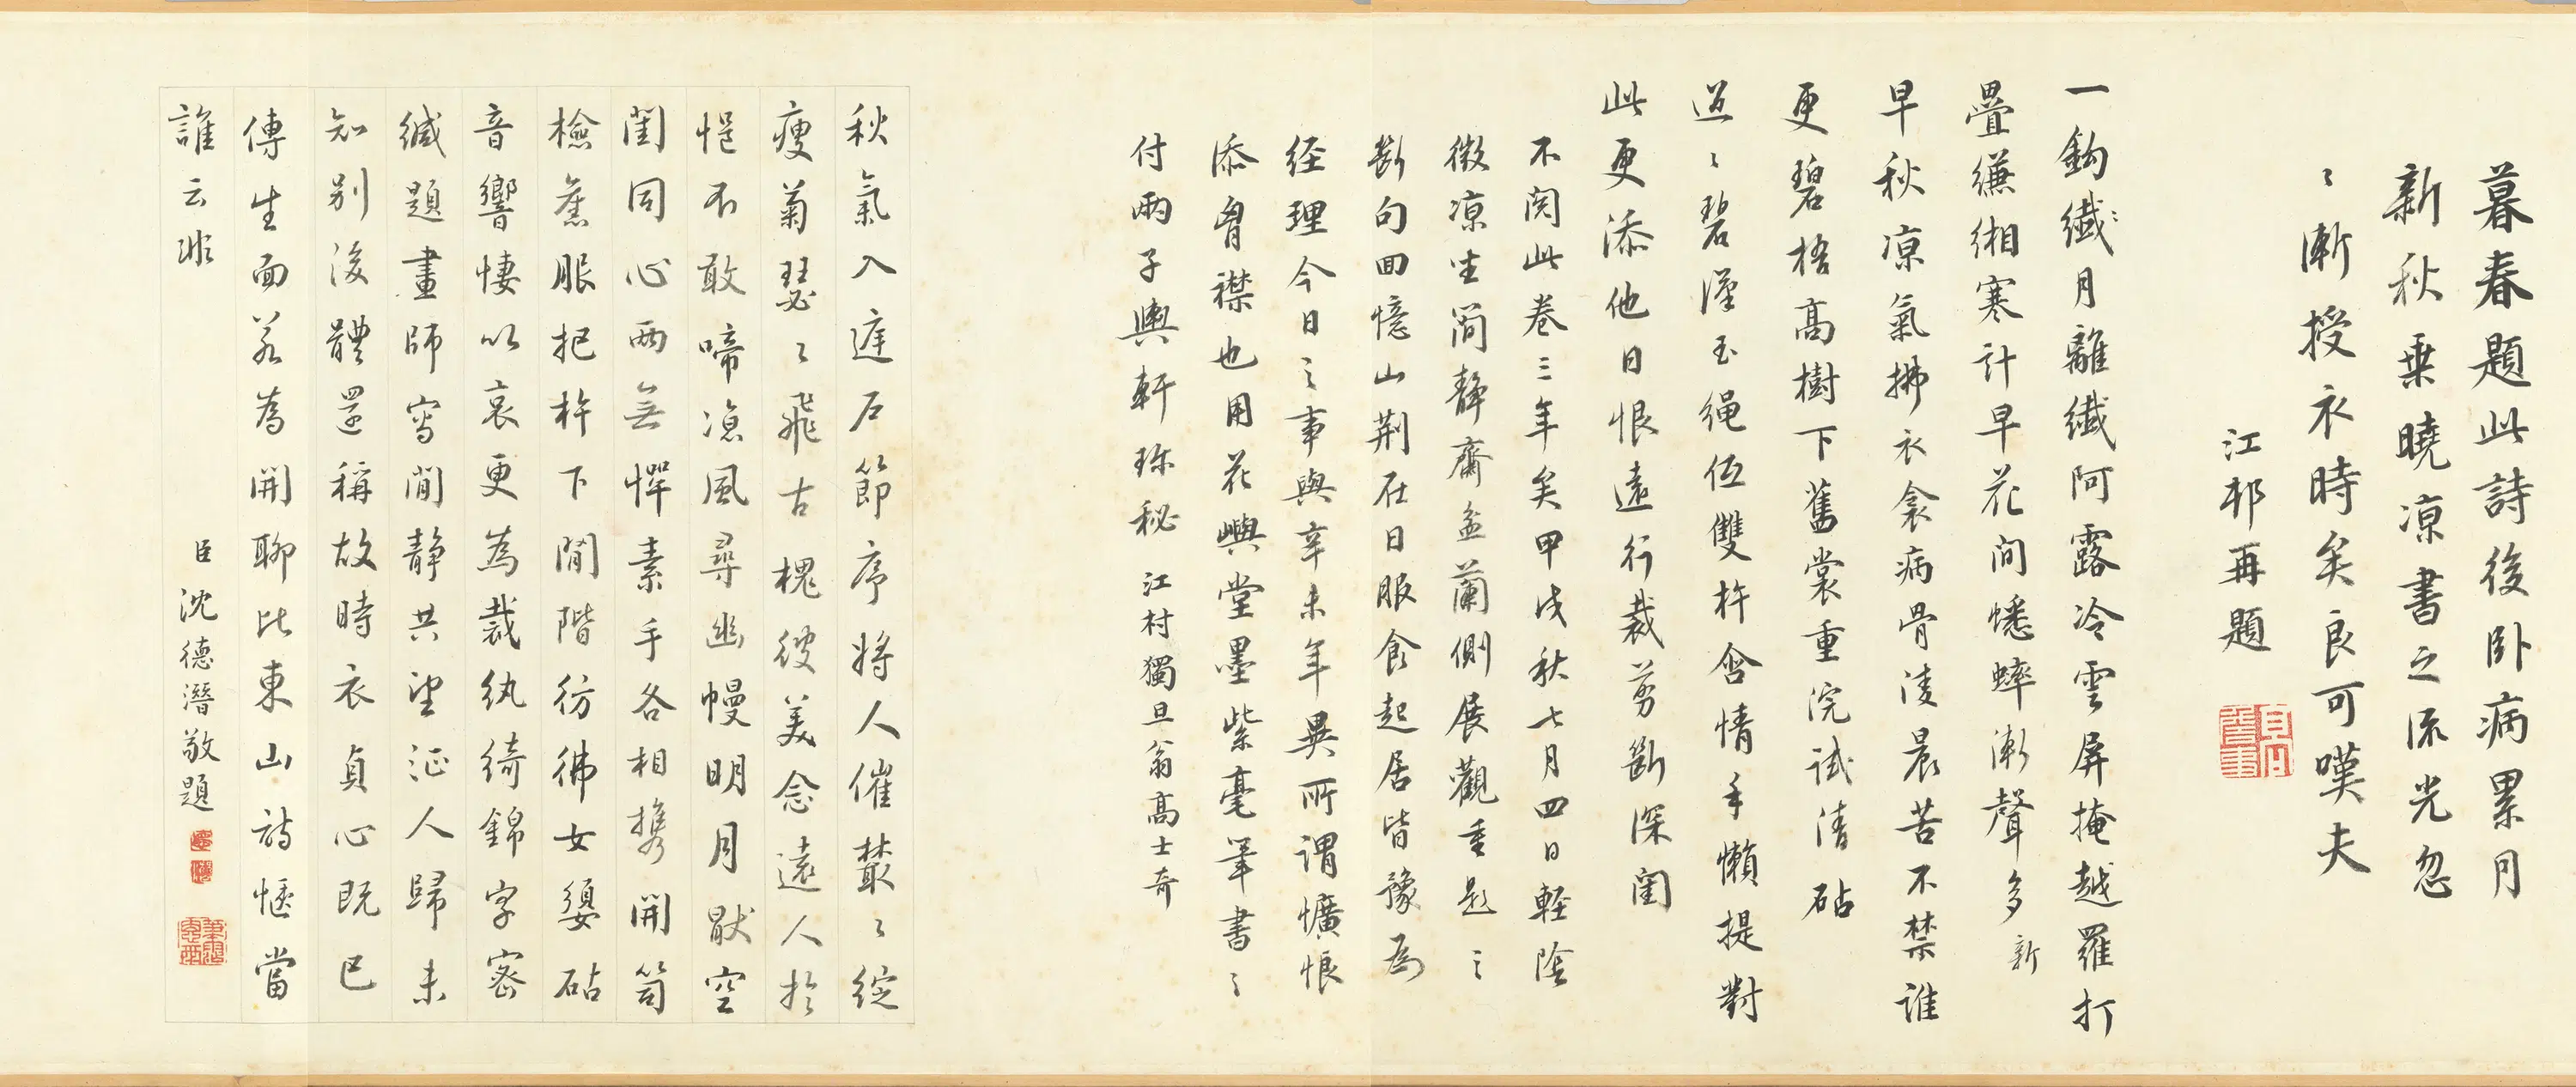 暮春題此詩後卧病累月
新秋乗曉凉書之流光忽
〻漸授衣時矣良可嘆夫
江邨再題
一鈎纖〻月離纖阿露冷雲屏掩越羅打
疊縑緗寒計早花间蟋蟀漸聲多新
早秋凉氣拂衣衾病骨淩晨苦不禁誰
更碧梧高樹下舊裳重浣試清砧
迢〻碧漢玉繩低雙杵含情手懶提對
此更添他日恨遠行裁剪斷深閨
不閱此卷三年矣甲戌秋七月四日輕陰
微凉坐簡靜齋盆蘭側展觀重題之
斷句回憶山荆在日服食起居皆豫為
経理今日之事與辛未年異所謂懭悢
添胷襟也用花嶼堂墨紫毫筆書之
付兩子輿軒珎秘 江村獨旦翁高士奇
秋氣入庭戶節序將人催藂〻綻
瘦菊瑟〻飛古槐彼美念遠人於
悒不敢啼凉風尋幽幔明月猒空
閨同心兩無憚素手各相携開笥
檢舊服把杵下閒階彷彿女嬃砧
音響悽以哀更為裁紈綺錦字密
緘題畫師寫閒靜共望征人歸未
知别後體還稱故時衣貞心既已
傳生面若為開聊比東山詩愜當
誰云非
臣沈德潛敬題